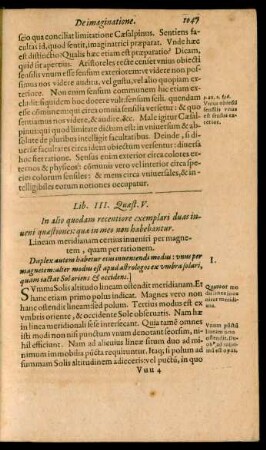 De imaginatione. 1047
scio qua conciliat limitatione Cæsalpinus. Sentiens facultas
id, quod sentit, imaginatrici præparat. Vnde hæc
est distinctio? Qualis hæc etiam est præparatio? Dicam,
quid sit apertius. Aristoteles recte censet vnius obiecti
sensilis vnum esse sensum exteriorem: vt videre non possumus
vel videre audita, vel gustu, vel alio quopiam exteriore.
Non enim sensum communem huc etiam excludit
siquidem hoc docere vult: sensum scil. quendam
esse communem qui circa omnia sensilia versetur: & quo
sentiamus nos videre, & audire &c. Male igitur Cæsalpinus:
qui quod modo dictum est de sensili absolute absolute
de pluribus intelligit facultatibus. Deinde, si diuersas
hic facultates intelligat, obiecta ponuntur: diuersa
hoc fierratione. Sensus enim exterior circa colores externos
& physicos: communis vero vel interior circa species
colorum sensiles: & mens circa vniuersales, & intelligibiles
eorum notiones occupatur.
Vnius obiecti
sensilis vnus
est sensus exterior.
Lib. III. Quæst. V.
In alio quodam recentiore exemplari duas inueni
quæstiones: quæ in meo non habebantur.
Lineam meridianam certius inueniri per magnetem,
quam per rationem.
Duplex autem habetur eius inueniendi modus: vnus per
magnetem: alter modus est apud astrologos ex vmbra solari,
quam iactat Sol oriens & occidens.]
I.
SVmma Solis altitudo lineam ostendit meridianam. Et
hanc etiam primo indicat. Magnes vero non
hanc ostendit lineam sed polum. Tertius modus est ex
vmbris oriente, & occidente Sole obseruatis. Nam hæ
in linea meridionali sese intersecant. Quia tamē omnes
isti modi non nisi punctum vnum denotant seorsim, nihil
efficiunt. Nam ad alienius lineæ situm duo ad minimum
immobilia pūcta requiruntur. Itaq; si polum ad
summam Solis altitudinem adieceris: vel pūctū, in quo
Vuu 4